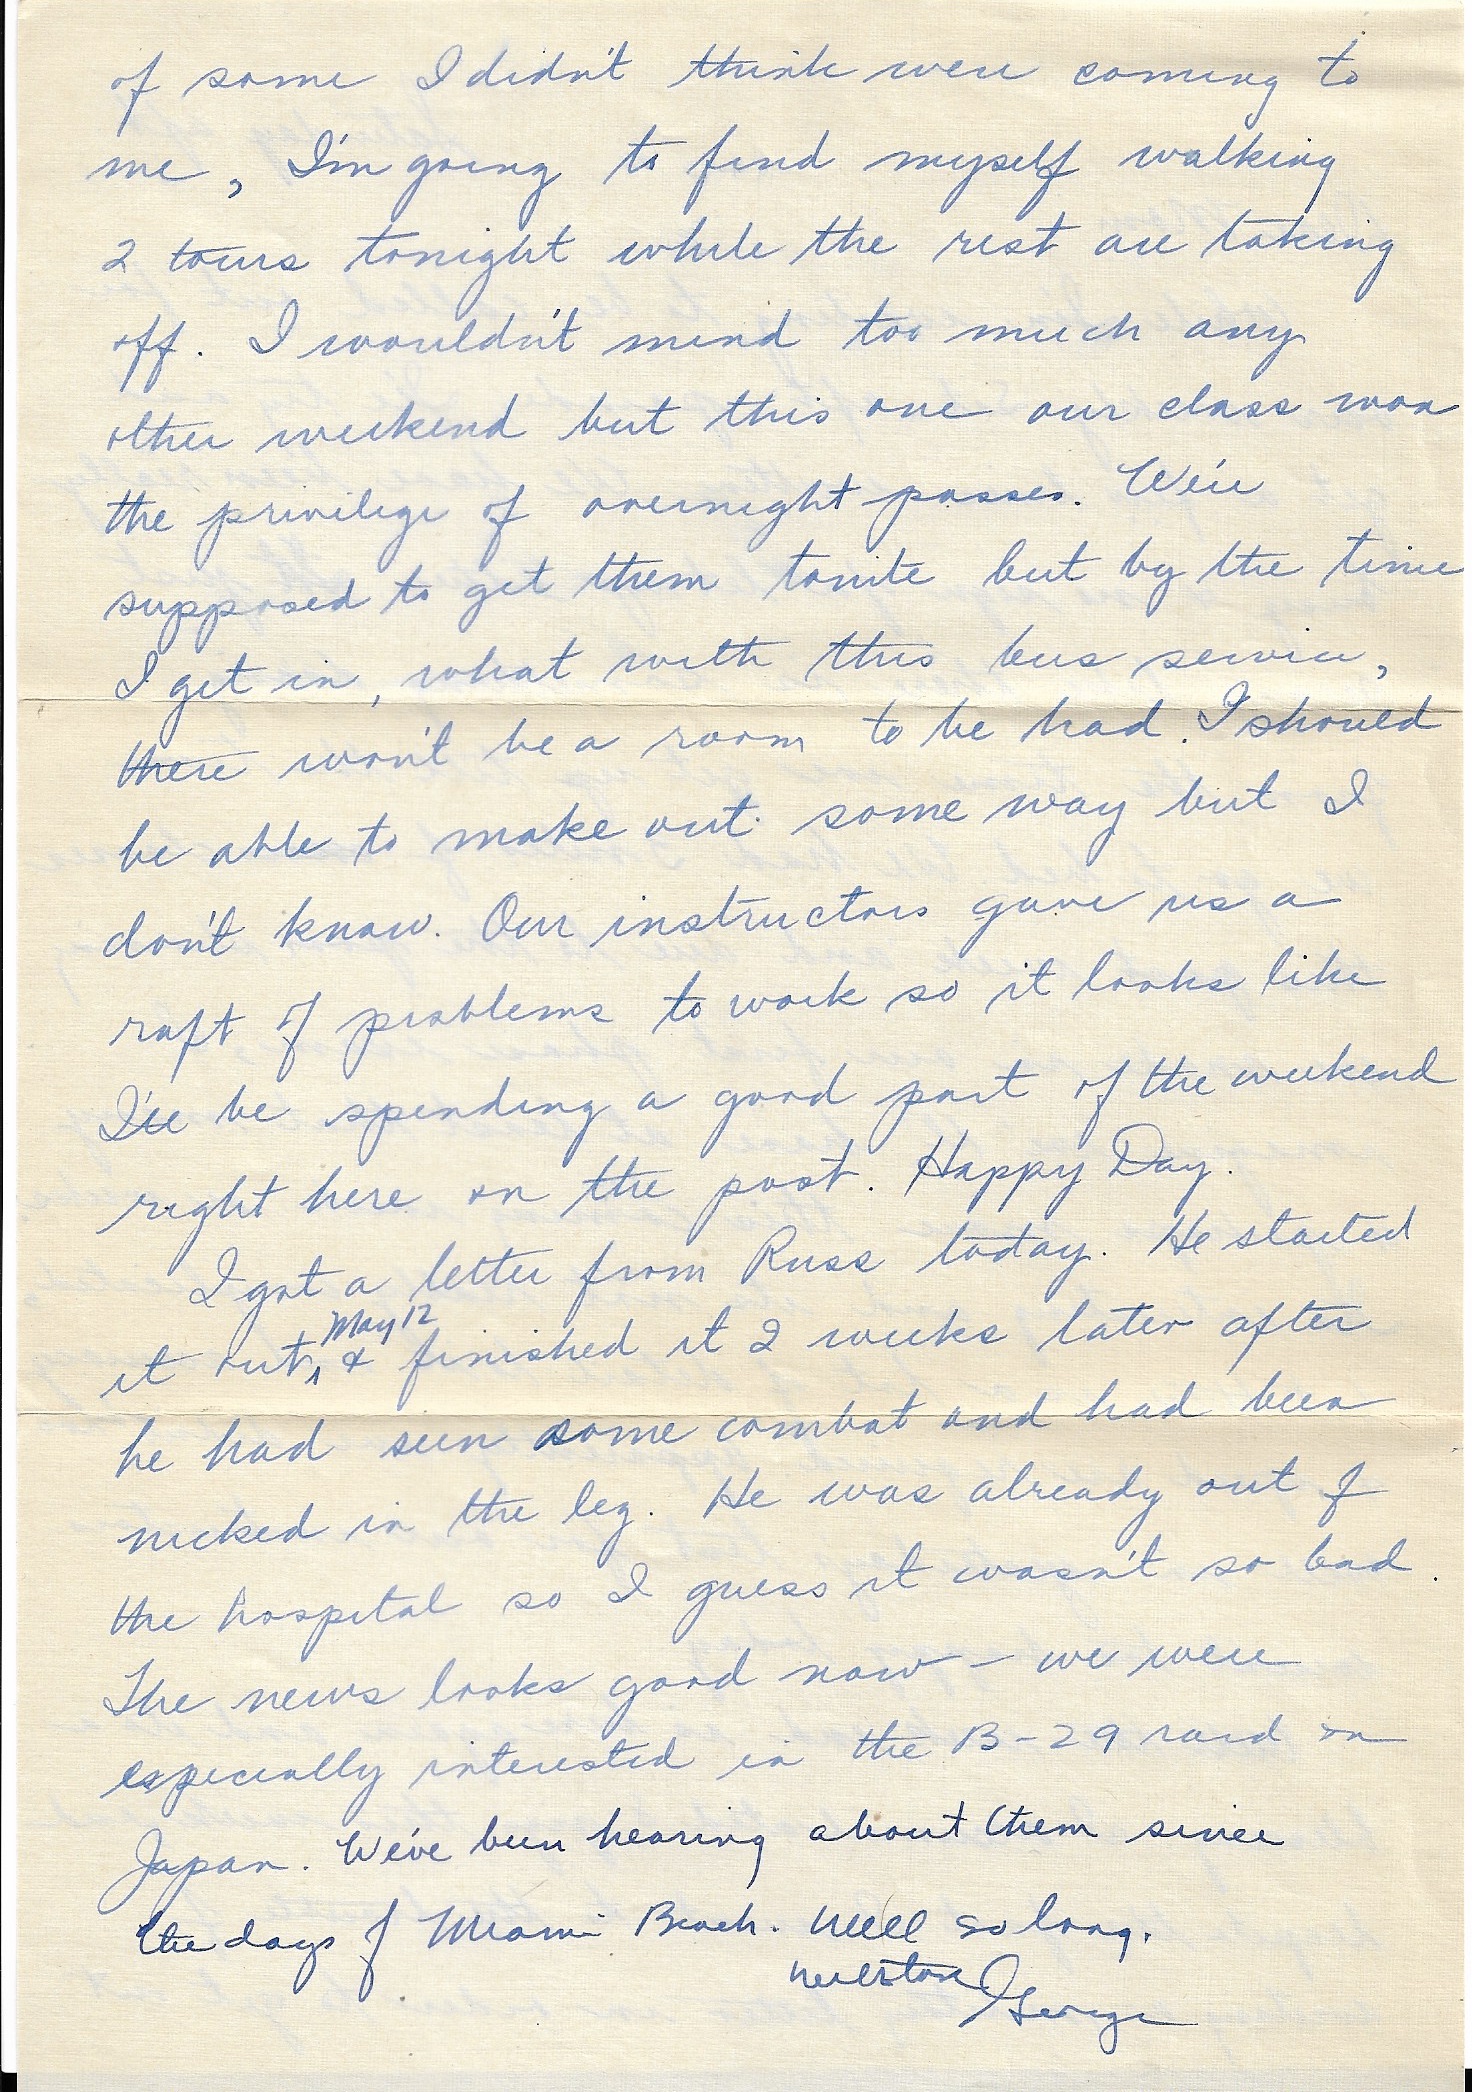 of some I didn't think were coming to
me, I'm going to find myself walking
2 tours tonight while the rest are taking
off. I wouldn't mind too much any
other weekend but this one our class won
the privilege of overnight passes. We're
supposed to get them tonite but by the time
I get in, what with this bus service,
there won't be a room to be had. I should
be able to make out some way but I
don't know. Our instructors gave us a
raft of problems to work so it looks like
I'll be spending a good part of the weekend
right here on the post. Happy Day.
I got a letter from Russ today. He started
May 12
it out, & finished it 2 weeks later after
he had seen some combat and had been
nicked in the leg. He was already out of
the hospital so I guess it wasn't so bad.
The news looks good now - we were
especially interested in the B-29 raid on
Japan. We've been hearing about them since
the days of Miami Beach. Well so long.
George